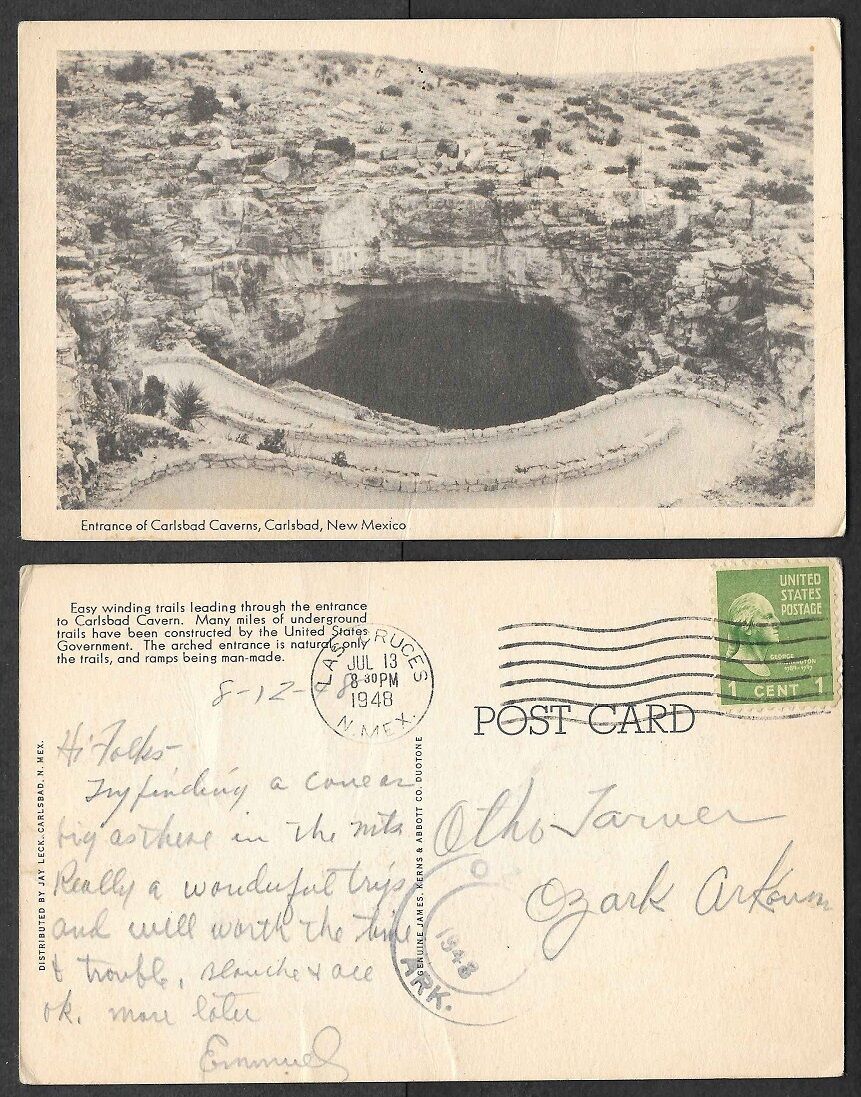 Entrance of Carlsbad Caverns, Carlsbad, New Mexico
Easy winding trails leading through the entrance
to Carlsbad Cavern. Many miles of underground
trails have been constructed by the United States
Government. The arched entrance is natural, only
the trails, and ramps being man-made.
LAS CRUCES
JUL 13
8 30 PM
1948
N. MEX.
UNITED
STATES
POSTAGE
GEORGE
WASHINGTON
1789-1797
1 CENT 1
POST CARD
8-12-48
Hi Folks-
Try finding a cave as
big as these in the mts
Really a wonderful trip
and well worth the time
& trouble, Blanche & all
ok. more later
Emmuel
DISTRIBUTED BY JAY LECK, CARLSBAD, N. MEX.
GENUINE JAMES, KERNS & ABBOTT CO. DUOTONE
Otho Tarver
Ozark Arkansas
OZ
1948
ARK.